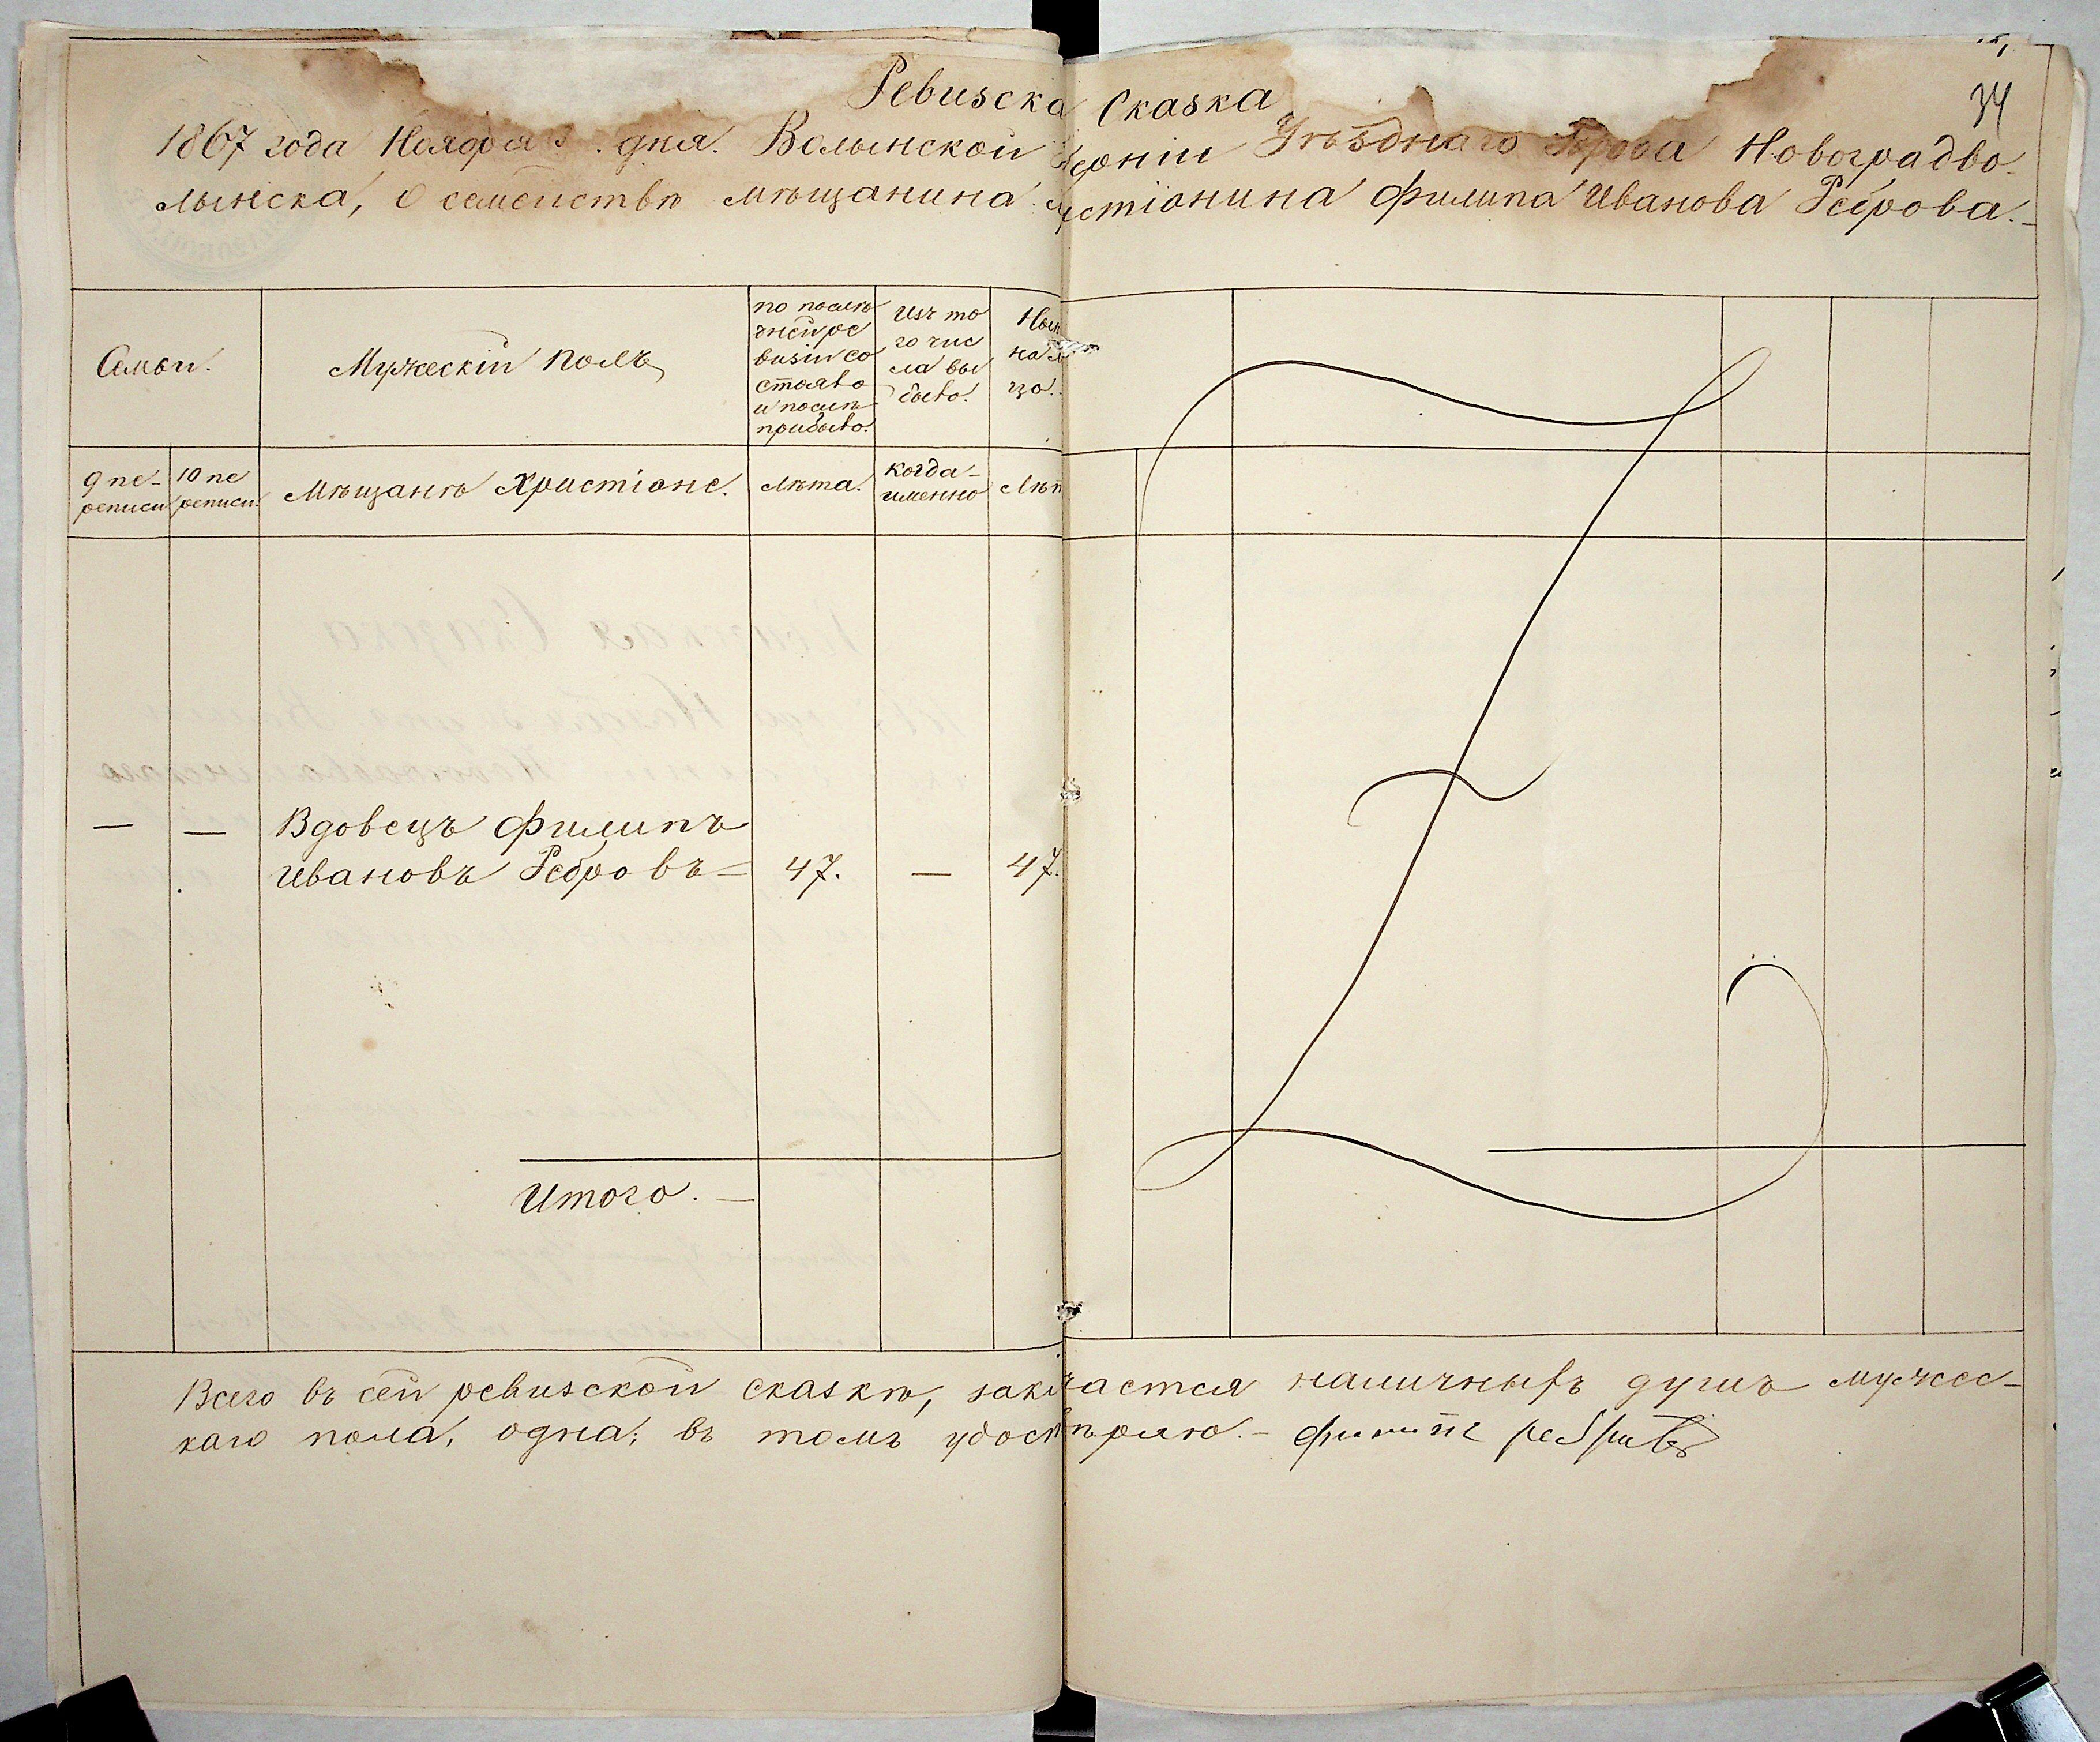 34
Ревизска Сказка
1867 года Ноября 3 дня. Волынской ерніи Уѣзднаго Города Новоградво-
лынска, О семействѣ мѣщанина истіонина Филипа Иванова Реброва.-
Семьи.
Мужескій полъ
по послѣ
дней ре
визіи со
стояло
и послѣ
прибыло.
Изъ то
го чис
ла вы
было.
Нын
на ли
цо.
9 пе-
реписи
10 пе
реписи.
Мѣщанъ Христіоне.
Лѣта.
когда-
именно
Лѣт
— — Вдовецъ Филипъ
Ивановъ Ребровъ — 47. — 47.
Итого. —
Всего въ сей ревизской сказкѣ, заключается наличныхъ душъ мужес-
каго пола, одна; въ томъ удостовѣряю.- Филипъ Ребровъ